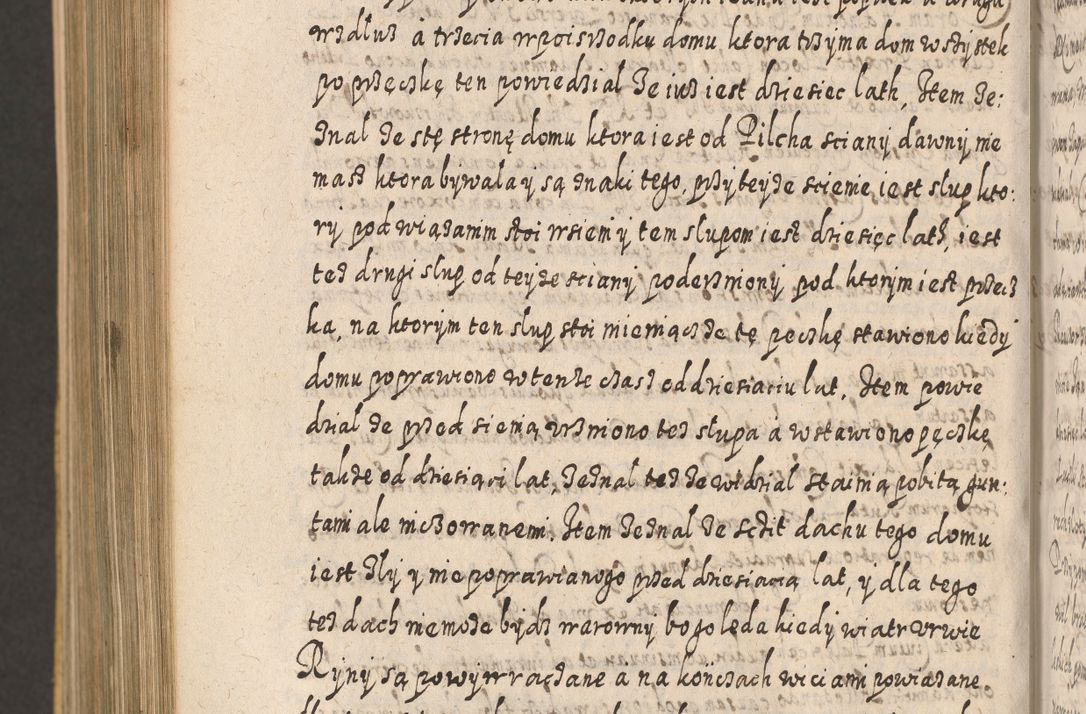 wzdłuż a trzecia wpoisrzodku domu ktora trzyma dom wszystek
po przęczkę ten powiedzial że iuż iest dziesiec lath, Item że:
znal że stę stronę domu ktora iest od Pilcha sciany dawny nie
masz ktora bywala y są znaki tego, przy teyże scienie iest slup kto:
ry pod wiązanim stoi wsieni y tem slupom iest dziesięc lath, iest
też drugi slup od teyże sciany poderzniony pod ktorym iest przecz
ka, na ktorym ten slup stoi mieniącz że tę peczkę stawiono kiedy
domu poprawiono wtenże czasz od dziesiaciu lat, Item powie
dzial że przed sienią urzniono też slupa a wstawiono pęczkę
także od dziesiąci lat, Zeznal też że widzial stainą pobitą gun:
tami ale niczowanemi. Item Zeznal że sczit dachu tego domu
iest zly y nie poprawianego przed dziesiącią lat, y dla tego
też dach niemoże bydz warowny bo go leda kiedy wiatr urwie
Ryny są powywraczane a na kończach wiciami powiązane